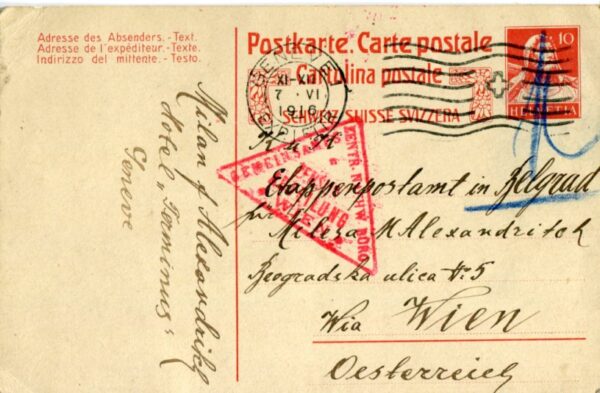 Adresse des Absenders.-Text.
Adresse de l'expéditeur.-Texte.
Indirizzo del mittente.-Testo.
Postkarte. Carte postale
Cartolina postale
SCHWEIZ. SUISSE SVIZZERA
10
HELVETIA
GENÈVE
XI-XII
7 · VI
1916
K. u. K
Etappenpostamt in Belgrad
für Miliza M Alexandritch
Beogradska ulica No 5
Wia Wien
Oesterreich
Milan J Alexandritch
Hotel „Terminus"
Geneve
GEMEINSAMES
ZENTR. NACHW. BÜRO
WIEN